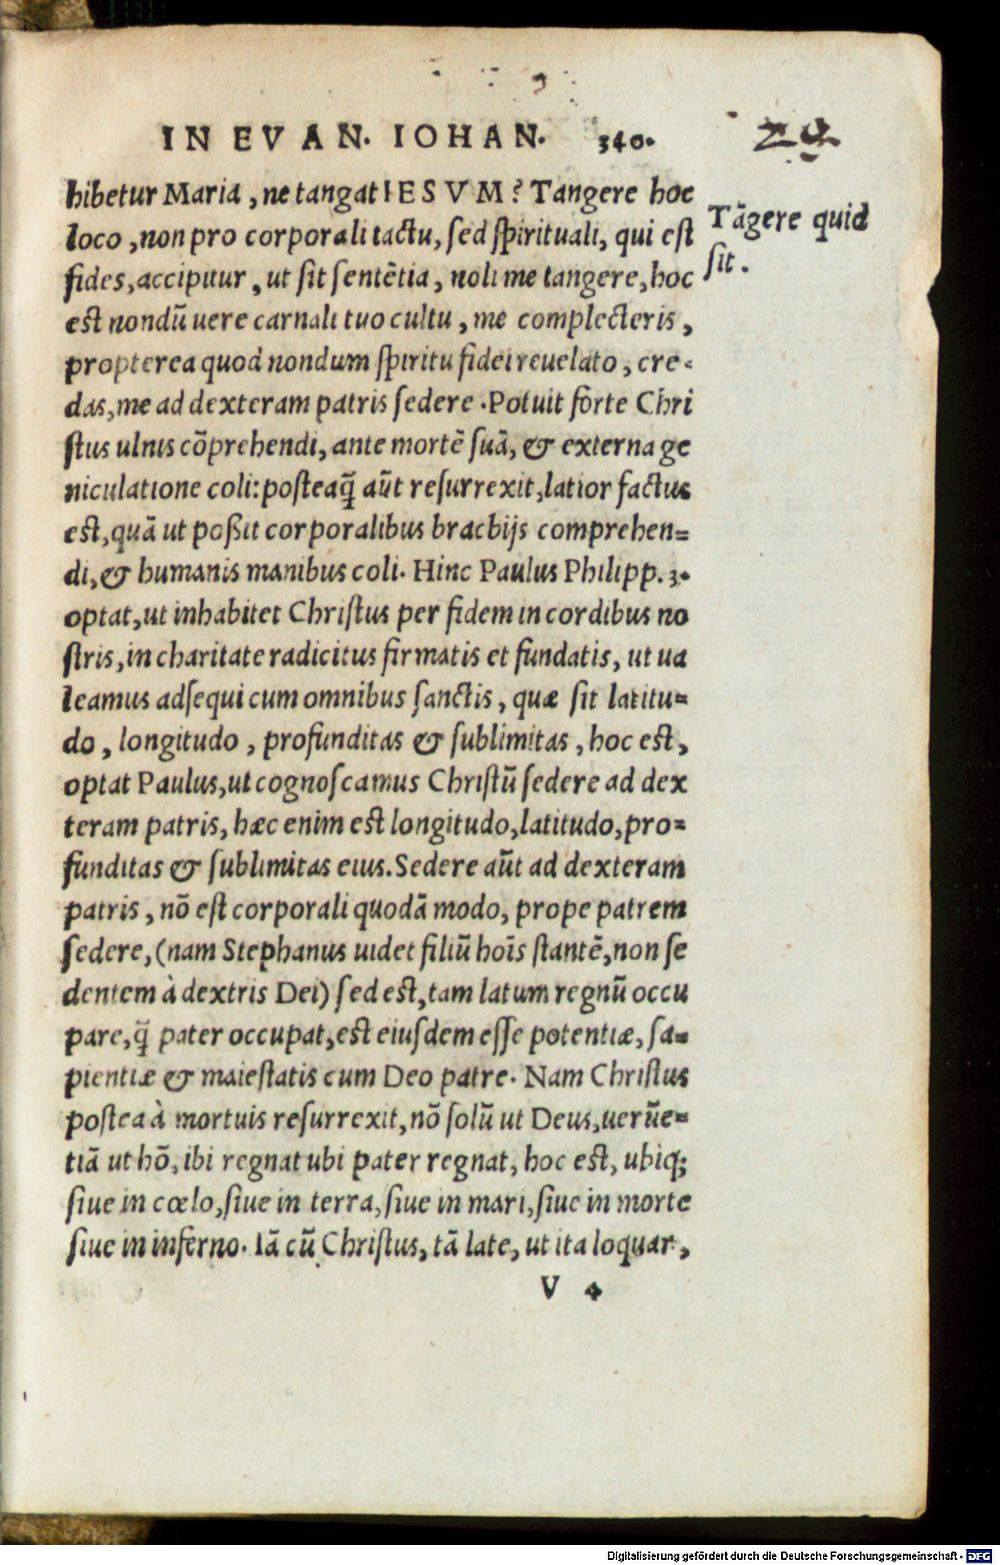 IN EVAN. IOHAN. 340.
hibetur Maria, ne tangat IESVM? Tangere hoc
loco, non pro corporali tactu, sed spirituali, qui est
fides, accipitur, ut sit sentētia, noli me tangere, hoc
est nondū uere carnali tuo cultu, me complecteris,
propterea quod nondum spiritu fidei reuelato, cre-
das, me ad dexteram patris sedere. Potuit forte Chri
stus ulnis cōprehendi, ante mortē suā, & externa ge
niculatione coli: posteaq̃ aūt resurrexit, latior factus
est, quā ut poßit corporalibus brachijs comprehen=
di, & humanis manibus coli. Hinc Paulus Philipp. 3.
optat, ut inhabitet Christus per fidem in cordibus no
stris, in charitate radicitus firmatis et fundatis, ut ua
leamus adsequi cum omnibus sanctis, quæ sit latitu=
do, longitudo, profunditas & sublimitas, hoc est,
optat Paulus, ut cognoscamus Christū sedere ad dex
teram patris, hæc enim est longitudo, latitudo, pro=
funditas & sublimitas eius. Sedere aūt ad dexteram
patris, nō est corporali quodā modo, prope patrem
sedere, (nam Stephanus uidet filiū hoīs stantē, non se
dentem à dextris Dei) sed est, tam latum regnū occu
pare, q̃ pater occupat, est eiusdem esse potentiæ, sa=
pientiæ & maiestatis cum Deo patre. Nam Christus
postea à mortuis resurrexit, nō solū ut Deus, uerūe=
tiā ut hō, ibi regnat ubi pater regnat, hoc est, ubiq;
siue in cœlo, siue in terra, siue in mari, siue in morte
siue in inferno. Iā cū Christus, tā late, ut ita loquar,
V 4
Tāgere quid
sit.
Digitalisierung gefördert durch die Deutsche Forschungsgemeinschaft - DFG